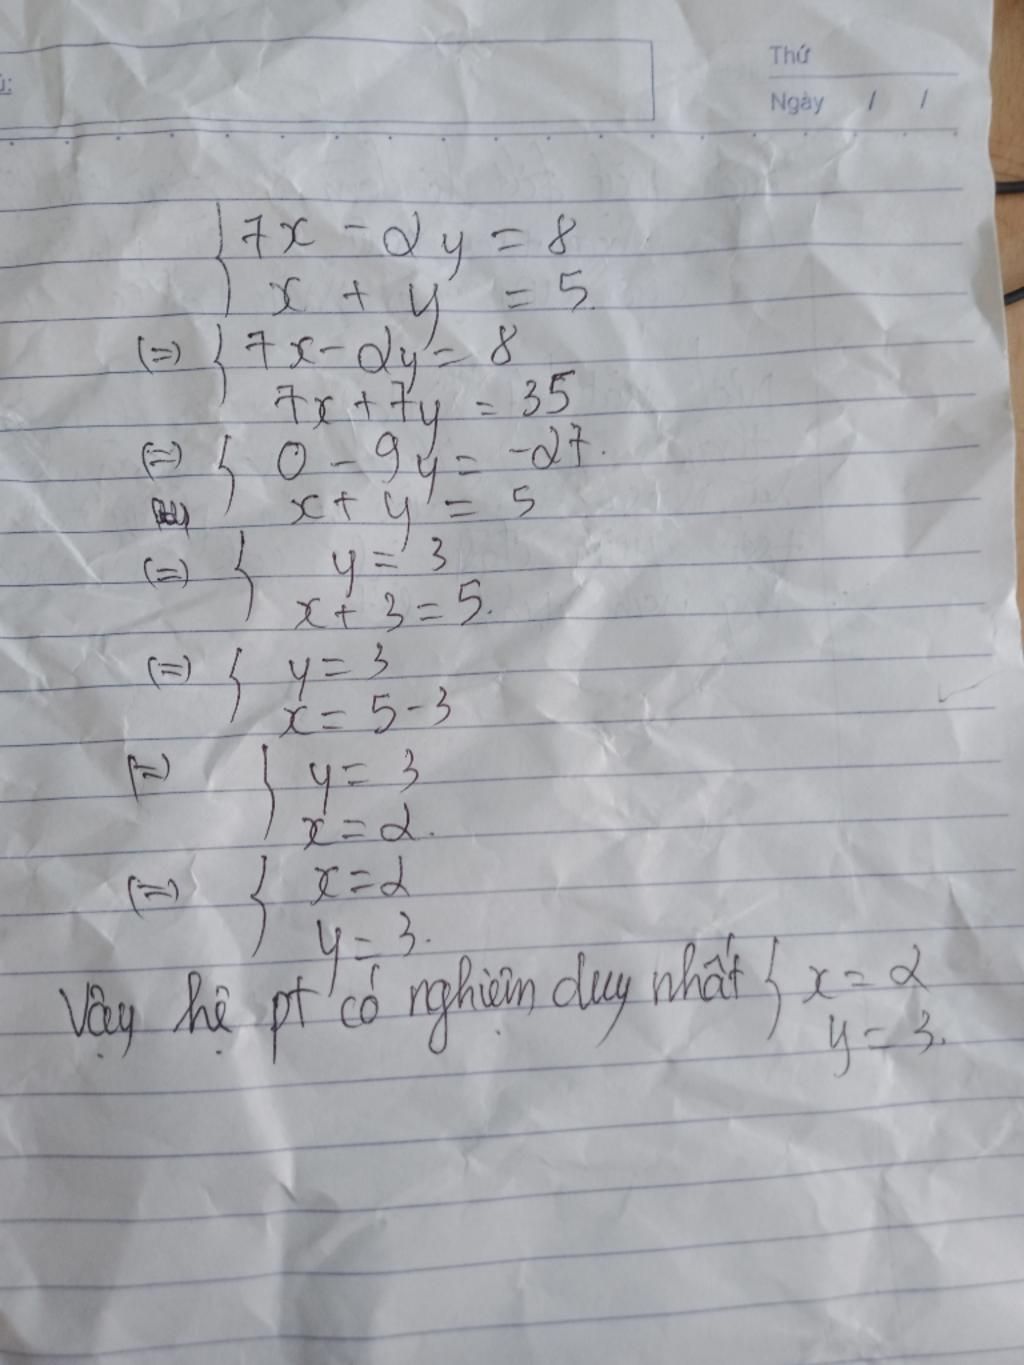 Thứ
Ngày / /
{ 7x - 2y = 8
x + y = 5.
(=) { 7x - 2y = 8
7x + 7y = 35
(=) { 0 - 9y = -27.
x + y = 5
(=) { y = 3
x + 3 = 5.
(=) { y = 3
x = 5 - 3
(=) { y = 3
x = 2.
(=) { x = 2
y = 3.
Vậy hệ pt có nghiệm duy nhất { x = 2
y = 3.